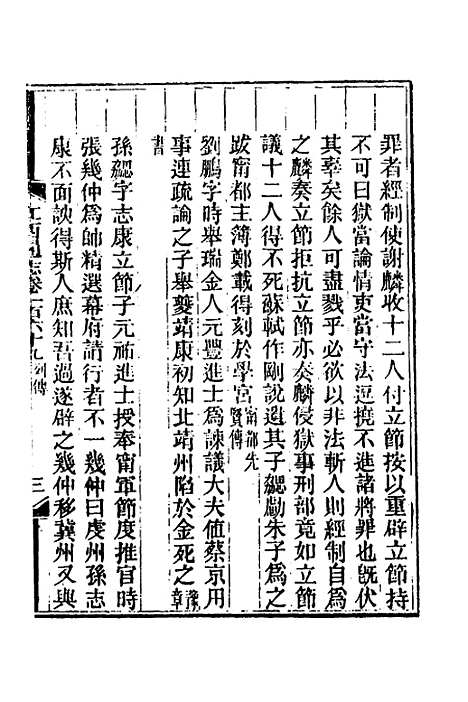 罪者經制使謝麟收十二人付立節按以重辟立節持
不可曰獄當論情吏當守法逗撓不進諸將罪也旣伏
其辜矣餘人可盡戮乎必欲以非法斬人則經制自爲
之麟奏立節拒抗立節亦奏麟侵獄事刑部竟如立節
議十二人得不死蘇軾作剛說遺其子勰勵朱子爲之
跋甯都主簿鄭載得刻於學宮甯都先賢傳
劉鵬字時舉瑞金人元豐進士爲諫議大夫値蔡京用
事連疏論之子舉夔靖康初知北靖州陷於金死之豫章
書
孫勰字志康立節子元祐進士授奉甯軍節度推官時
張幾仲爲帥精選幕府請行者不一幾仲曰虔州孫志
康不面諛得斯人庶知吾過遂辟之幾仲移冀州又與
江西通志卷一百六十九列傳
三